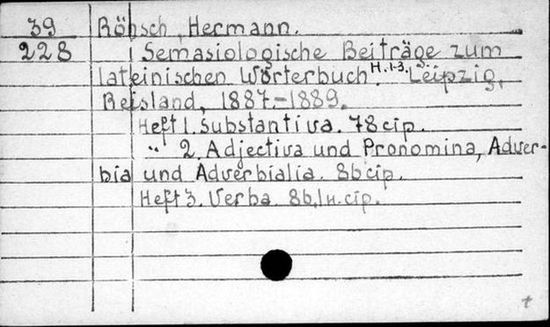 39 Rönsch, Hermann.
228 Semasiologische Beiträge zum
lateinischen Wörterbuch. H. 1-3. Leipzig,
Reisland, 1887-1889.
Heft 1. Substantiva. 78 стр.
" 2. Adjectiva und Pronomina, Adver-
bia und Adverbialia.
Heft 3. Verba.
t